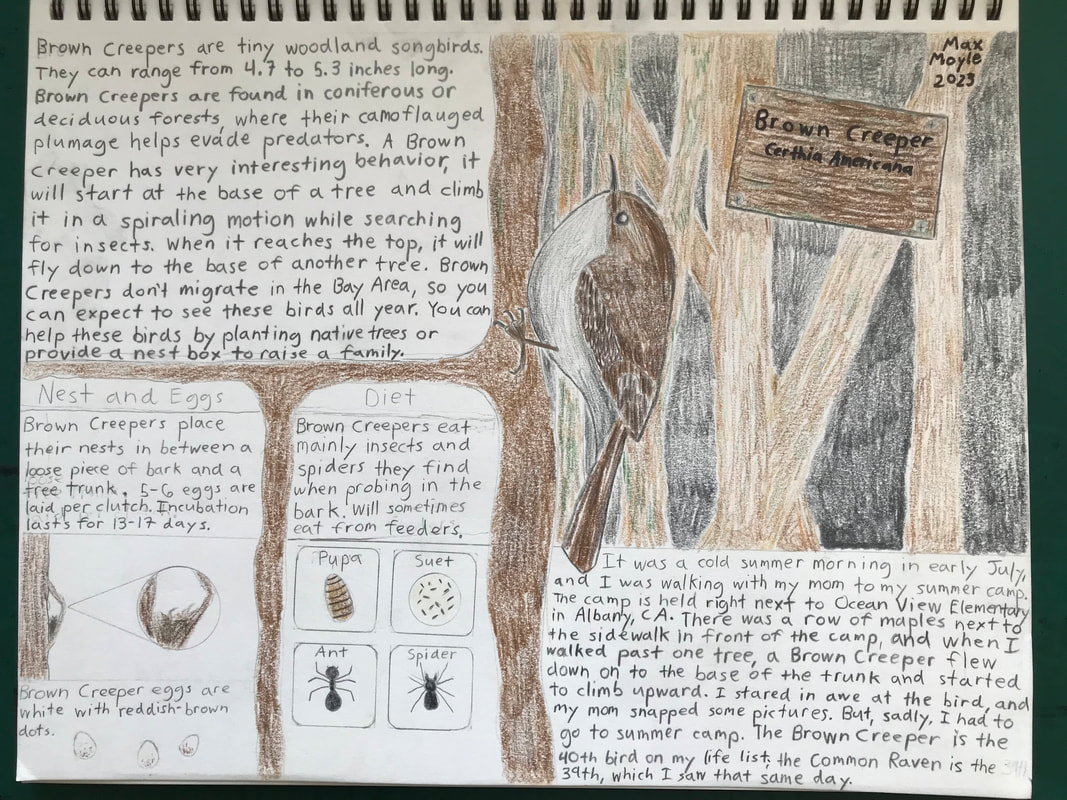 Brown Creepers are tiny woodland songbirds.
They can range from 4.7 to 5.3 inches long.
Brown Creepers are found in coniferous or
deciduous forests, where their camoflauged
plumage helps evade predators. A Brown
Creeper has very interesting behavior, it
will start at the base of a tree and climb
it in a spiraling motion while searching
for insects. When it reaches the top, it will
fly down to the base of another tree. Brown
Creepers don't migrate in the Bay Area, so you
can expect to see these birds all year. You can
help these birds by planting native trees or
provide a nest box to raise a family.
Max
Moyle
2023
Brown Creeper
Certhia Americana
Nest and Eggs
Brown Creepers place
their nests in between a
loose piece of bark and a
tree trunk. 5-6 eggs are
laid per clutch. Incubation
lasts for 13-17 days.
Brown Creeper eggs are
white with reddish-brown
dots.
Diet
Brown Creepers eat
mainly insects and
spiders they find
when probing in the
bark. Will sometimes
eat from feeders.
Pupa
Suet
Ant
Spider
It was a cold summer morning in early July,
and I was walking with my mom to my summer camp.
The camp is held right next to Ocean View Elementary
in Albany, CA. There was a row of maples next to
the sidewalk in front of the camp, and when I
walked past one tree, a Brown Creeper flew
down on to the base of the trunk and started
to climb upward. I stared in awe at the bird, and
my mom snapped some pictures. But, sadly, I had to
go to summer camp. The Brown Creeper is the
40th bird on my life list, the Common Raven is the
39th, which I saw that same day.